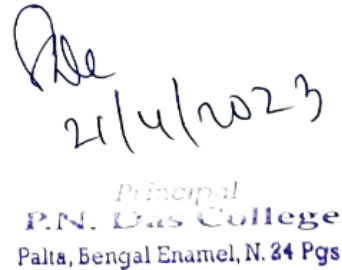 21/4/2023
Principal
P.N. Das College
Palta, Bengal Enamel, N. 24 Pgs